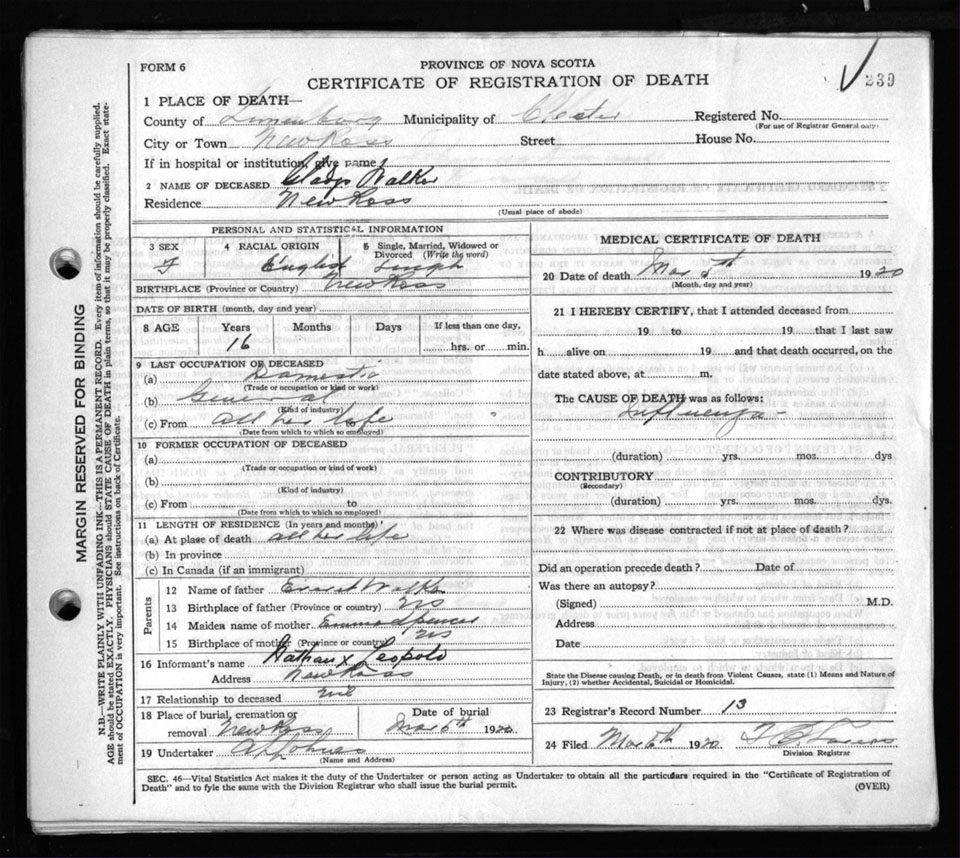 FORM 6
PROVINCE OF NOVA SCOTIA
CERTIFICATE OF REGISTRATION OF DEATH
239
1 PLACE OF DEATH—
County of Lunenburg Municipality of Chester Registered No.
(For use of Registrar General only)
City or Town New Ross Street House No.
If in hospital or institution, give name
2 NAME OF DECEASED Gladys Walker
Residence New Ross
(Usual place of abode)
PERSONAL AND STATISTICAL INFORMATION
3 SEX 4 RACIAL ORIGIN 5 Single, Married, Widowed or Divorced (Write the word)
F English Single
BIRTHPLACE (Province or Country) New Ross
DATE OF BIRTH (month, day and year)
8 AGE Years Months Days If less than one day,
16 hrs. or min.
9 LAST OCCUPATION OF DECEASED
(a) Domestic
(Trade or occupation or kind or work)
(b) General
(Kind of industry)
(c) From all her life to
(Date from which to which so employed)
10 FORMER OCCUPATION OF DECEASED
(a)
(Trade or occupation or kind of work)
(b)
(Kind of industry)
(c) From to
(Date from which to which so employed)
11 LENGTH OF RESIDENCE (In years and months)
(a) At plase of death all her life
(b) In province
(c) In Canada (if an immigrant)
Parents
12 Name of father Ernest Walker
13 Birthplace of father (Province or country) NS
14 Maiden name of mother Emma Spencer
15 Birthplace of mother (Province or country) NS
16 Informant's name Nathan x Leopold
Address New Ross
17 Relationship to deceased
18 Place of burial, cremation or removal New Ross Date of burial Mar 5th 1920
19 Undertaker
(Name and Address)
MEDICAL CERTIFICATE OF DEATH
20 Date of death Mar 5th 1920
(Month, day and year)
21 I HEREBY CERTIFY, that I attended deceased from
19 to 19 that I last saw
h alive on 19 and that death occurred, on the
date stated above, at m.
The CAUSE OF DEATH was as follows:
Influenza -
(duration) yrs. mos. dys
CONTRIBUTORY
(Secondary)
(duration) yrs. mos. dys.
22 Where was disease contracted if not at place of death?
Did an operation precede death? Date of
Was there an autopsy?
(Signed) M.D.
Address
Date
State the Disease causing Death, or in death from Violent Causes, state (1) Means and Nature of
Injury, (2) whether Accidental, Suicidal or Homicidal.
23 Registrar's Record Number 13
24 Filed Mar 6th 1920
Division Registrar
SEC. 46—Vital Statistics Act makes it the duty of the Undertaker or person acting as Undertaker to obtain all the particulars required in the "Certificate of Registration of
Death" and to fyle the same with the Division Registrar who shall issue the burial permit.
(OVER)
MARGIN RESERVED FOR BINDING
N.B.—WRITE PLAINLY WITH UNFADING INK—THIS IS A PERMANENT RECORD. Every item of information should be carefully supplied.
AGE should be stated EXACTLY. PHYSICIANS should STATE CAUSE OF DEATH in plain terms, so that it may be properly classified. Exact state-
ment of OCCUPATION is very important. See instructions on back of Certificate.